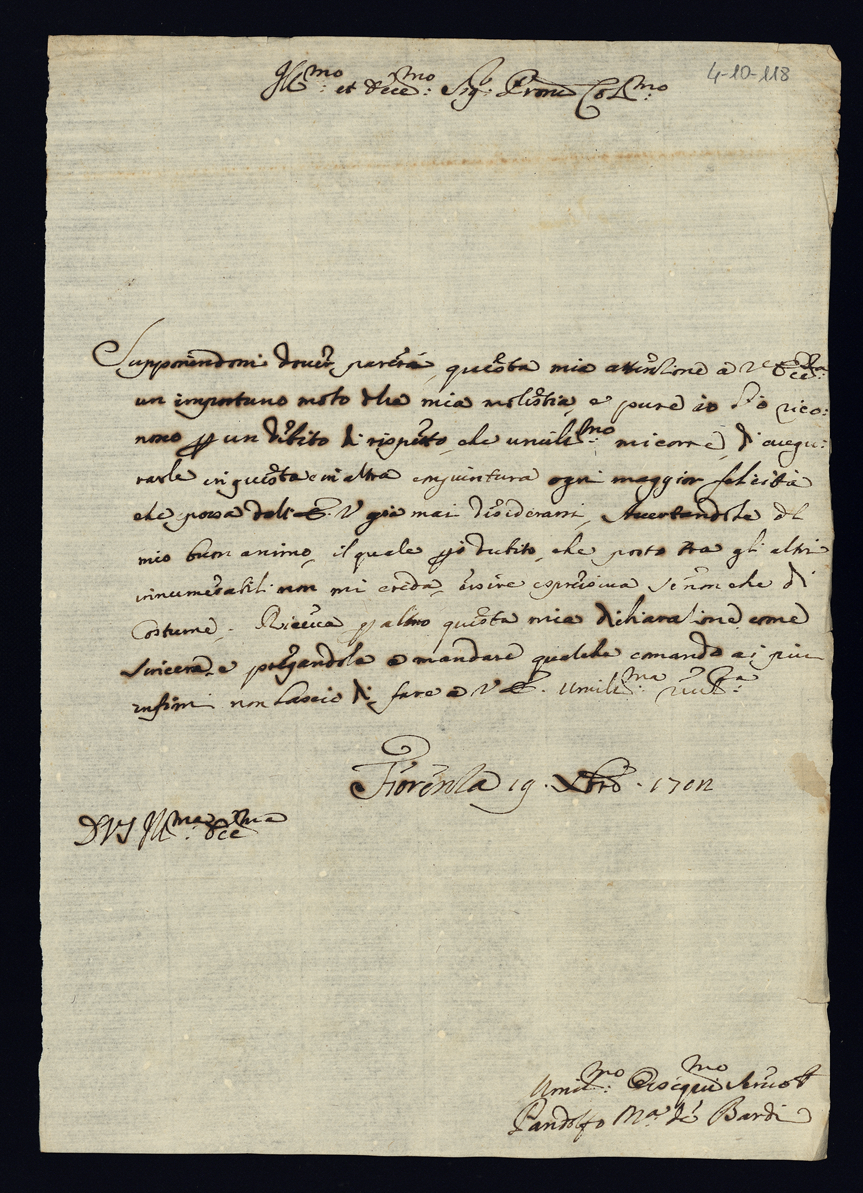 4-10-118
Ill.mo et Ecc.mo Sig.r Prone Col.mo
Supponendomi dover parere questa mia attenzione a V. Ecc.za
un importuno moto della mia molestia, e pure io lo rico:
nosco p un debito di rispetto, che umiliss.mo mi corre, di augu:
rarle in questa e in altra congiuntura ogni maggior felicità
che possa dall E. V. gia mai desiderarsi, Accertandola del
mio buon animo, il quale dubito, che posto tra gli altri
innumerabili non mi creda, essere espressiva se non che di
Costume. Riceva p altro questa mia dichiarazione come
sincera, e pregandola a mandare qualche comando ai piu
infimi non lascio di fare a V. E. umiliss.ma riv.za
Fiorenza 19. Xbre. 1702
D V S Ill.ma Ecc.ma
Umil.mo Oseq.mo Servo
Pandolfo M.a de Bardi